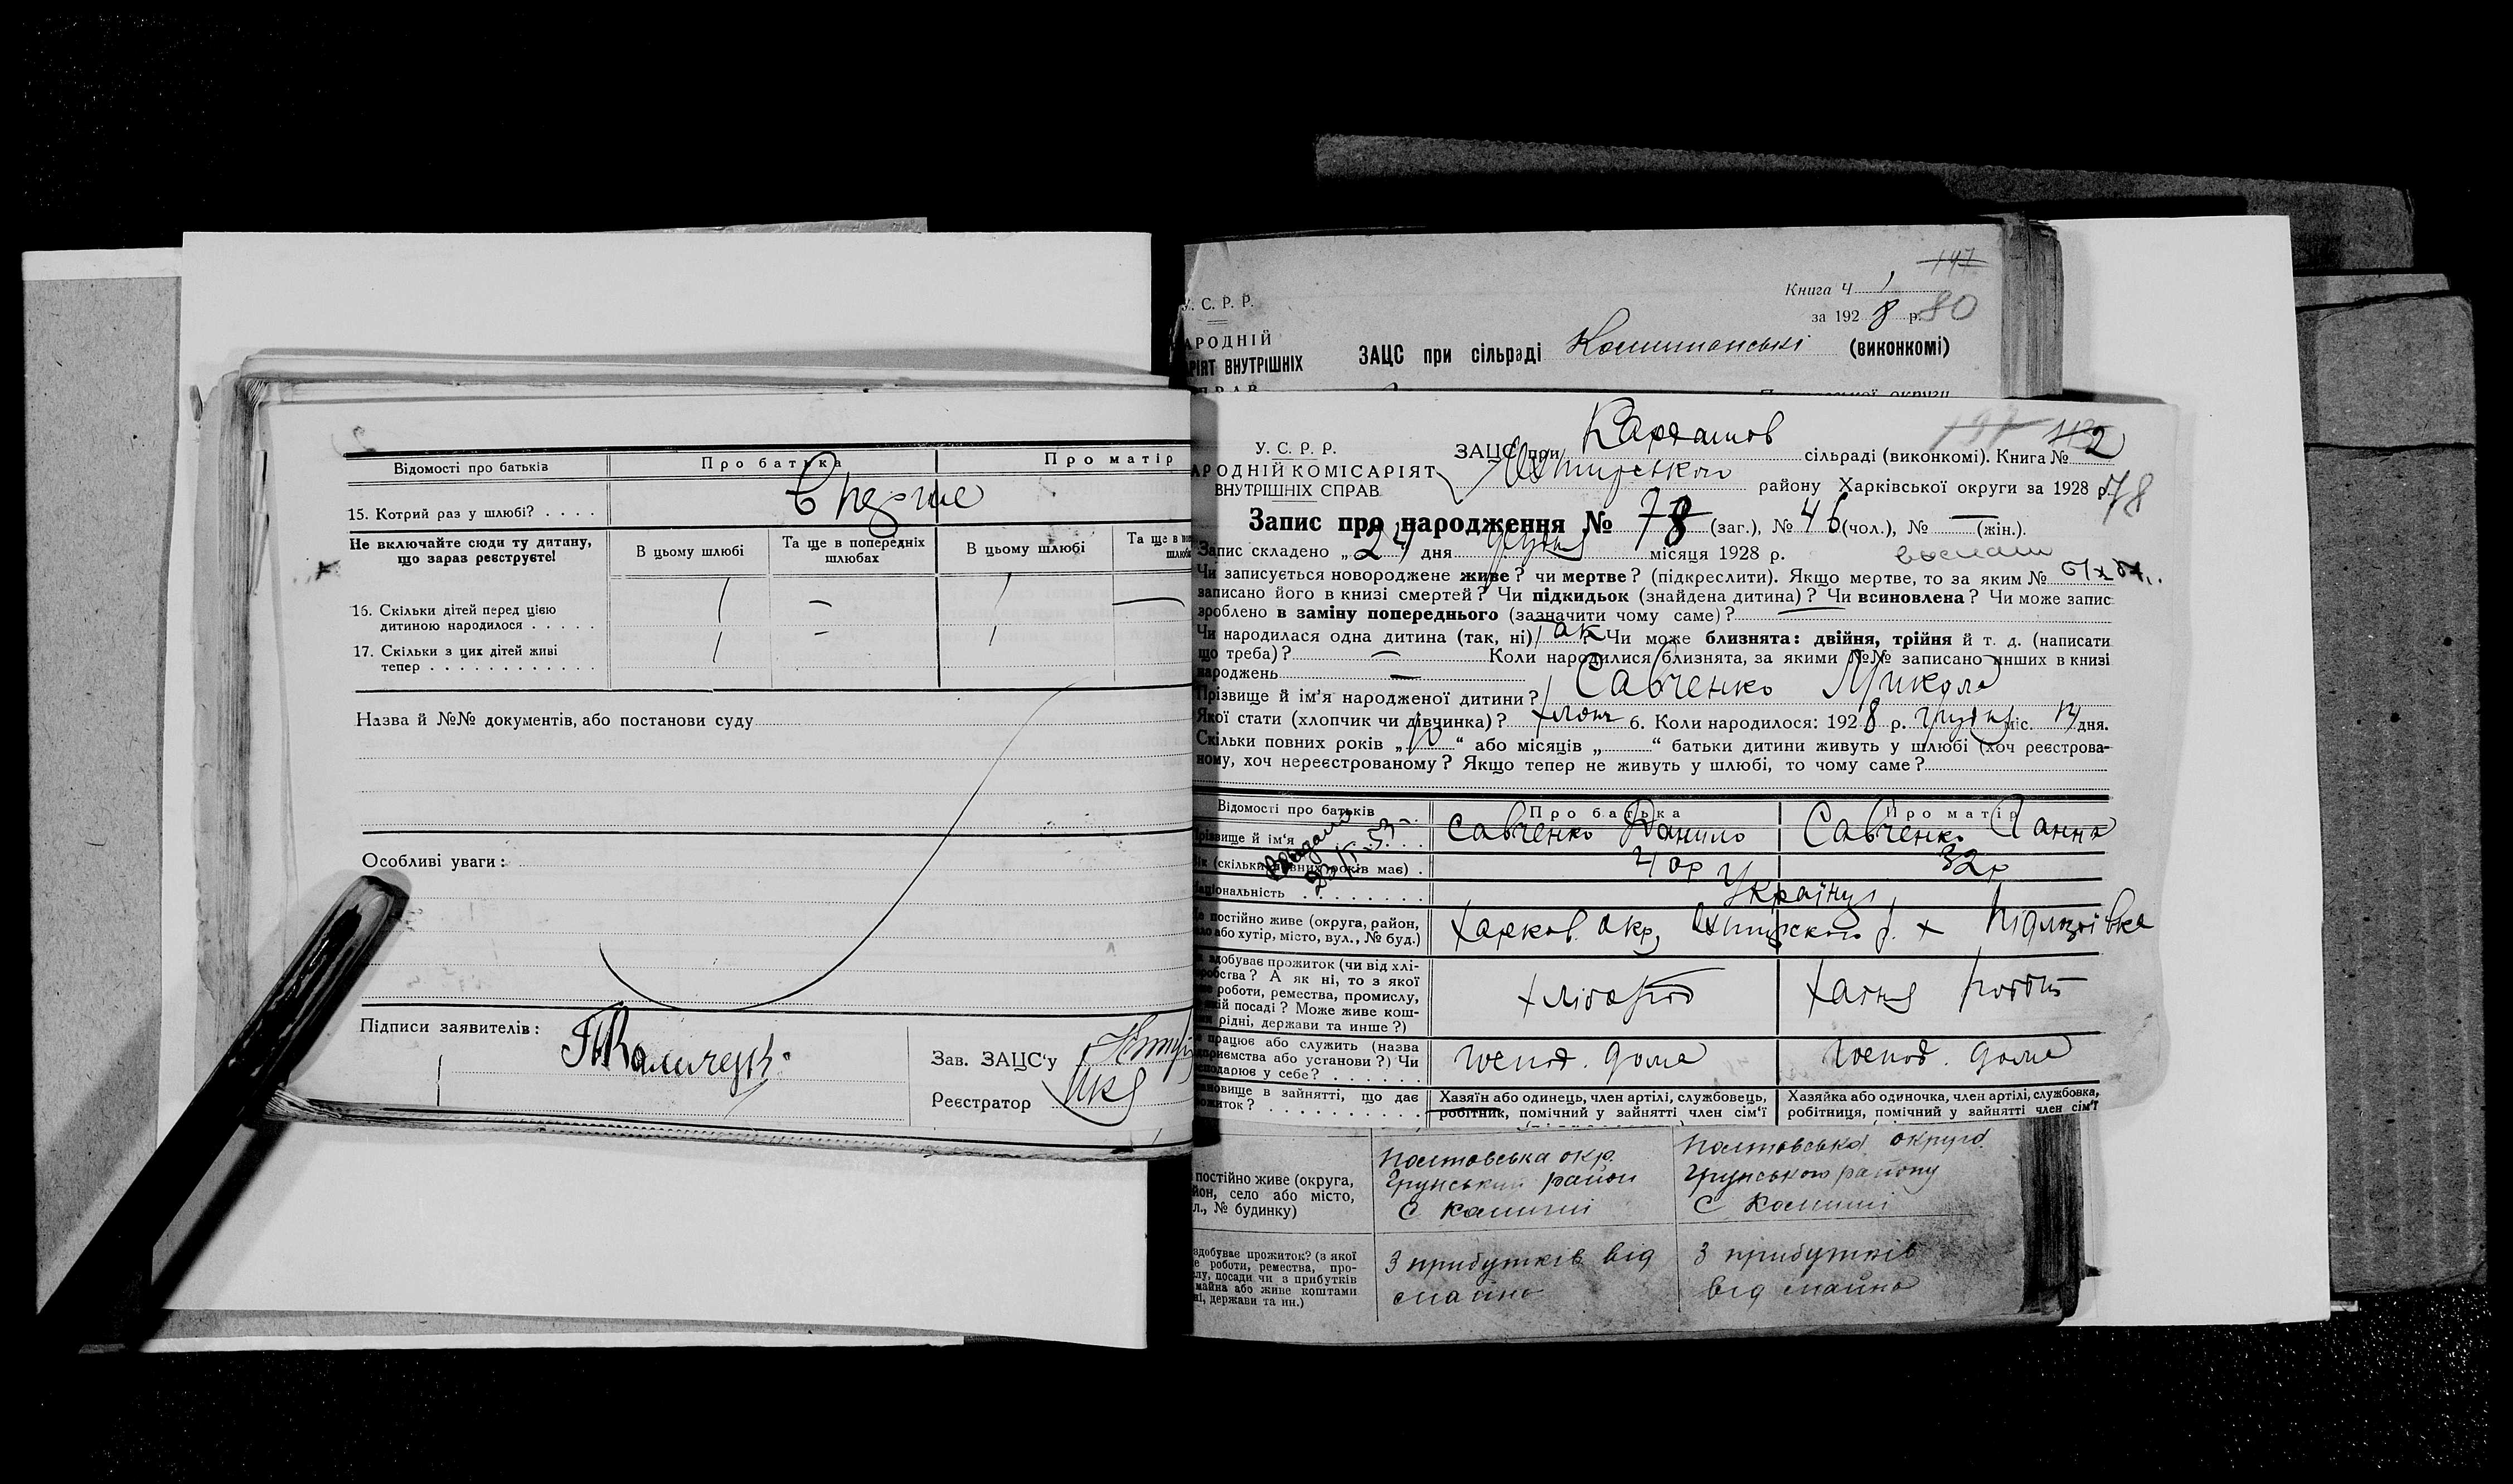 Відомості про батьків
Про батька
Про матір
15. Котрий раз у шлюбі? . . . .
Вперше
Не включайте сюди ту дитину,
що зараз реєструєте!
В цьому шлюбі
Та ще в попередніх
шлюбах
В цьому шлюбі
Та ще в
16. Скільки дітей перед цією
дитиною народилося . . . . .
1 — 1 —
17. Скільки з цих дітей живі
тепер . . . . . . . . . . . .
1 - 1
Назва й №№ документів, або постанови суду
Особливі уваги:
Підписи заявителів:
Зав. ЗАЦС'у
Реєстратор
147
Книга Ч 1
за 1928 р. 80
У. С. Р. Р.
АРОДНІЙ
РІЯТ ВНУТРІШНІХ
ПРАВ
ЗАЦС при сільраді (виконкомі)
округи
У. С. Р. Р.
АРОДНІЙ КОМІСАРІЯТ
ВНУТРІШНІХ СПРАВ
ЗАЦС при Кардашов сільраді (виконкомі). Книга № 2
Охтирського району Харківської округи за 1928 р.
78
Запис про народження № 78 (заг.), № 46 (чол.), № — (жін.).
Запис складено „24" дня грудня місяця 1928 р.
Чи записується новороджене живе? чи мертве? (підкреслити). Якщо мертве, то за яким №
записано його в книзі смертей? Чи підкидьок (знайдена дитина)? Чи всиновлена? Чи може запис
зроблено в заміну попереднього (зазначити чому саме)? —
Чи народилася одна дитина (так, ні) так? Чи може близнята: двійня, трійня й т. д. (написати
що треба)? — Коли народилися близнята, за якими №№ записано инших в книзі
народжень —
Прізвище й ім'я народженої дитини? Савченко Микола
Якої стати (хлопчик чи дівчинка)? хлопч 6. Коли народилося: 1928 р. грудня міс. 13 дня.
Скільки повних років „10" або місяців „ " батьки дитини живуть у шлюбі (хоч реєстрова-
ному, хоч нереєстрованому? Якщо тепер не живуть у шлюбі, то чому саме?
Відомості про батьків
Про батька
Про матір
Прізвище й ім'я
Савченко Данило
Савченко Ганна
Вік (скільки повних років має) .
40р
32р
Національність . . . . . . . .
Українці
постійно живе (округа, район,
або хутір, місто, вул., № буд.)
Харков. окр, Охтирського р. х Підлозіївка
здобуває прожиток (чи від хлі-
робства? А як ні, то з якої
роботи, ремества, промислу,
якій посаді? Може живе кош-
рідні, держави та инше?)
хлібороб
хатня робот
працює або служить (назва
приємства або установи?) Чи
господарює у себе? . . . . . .
господ. дома
господ. дома
становище в зайнятті, що дає
прожиток? . . . . . . . . . .
Хазяїн або одинець, член артілі, службовець,
робітник, помічний у зайнятті член сім'ї
Хазяйка або одиночка, член артілі, службовка,
робітниця, помічний у зайнятті член сім'ї
постійно живе (округа,
йон, село або місто,
л., № будинку)
Полтовська окр.
Грунський район
С Комиші
Полтовська округа
Грунського району
С Комиші
здобуває прожиток? (з якої
е роботи, ремества, про-
лу, посади чи з прибутків
майна або живе коштами
ні, держави та ин.)
З прибутків від
майна
З прибутків
від майна